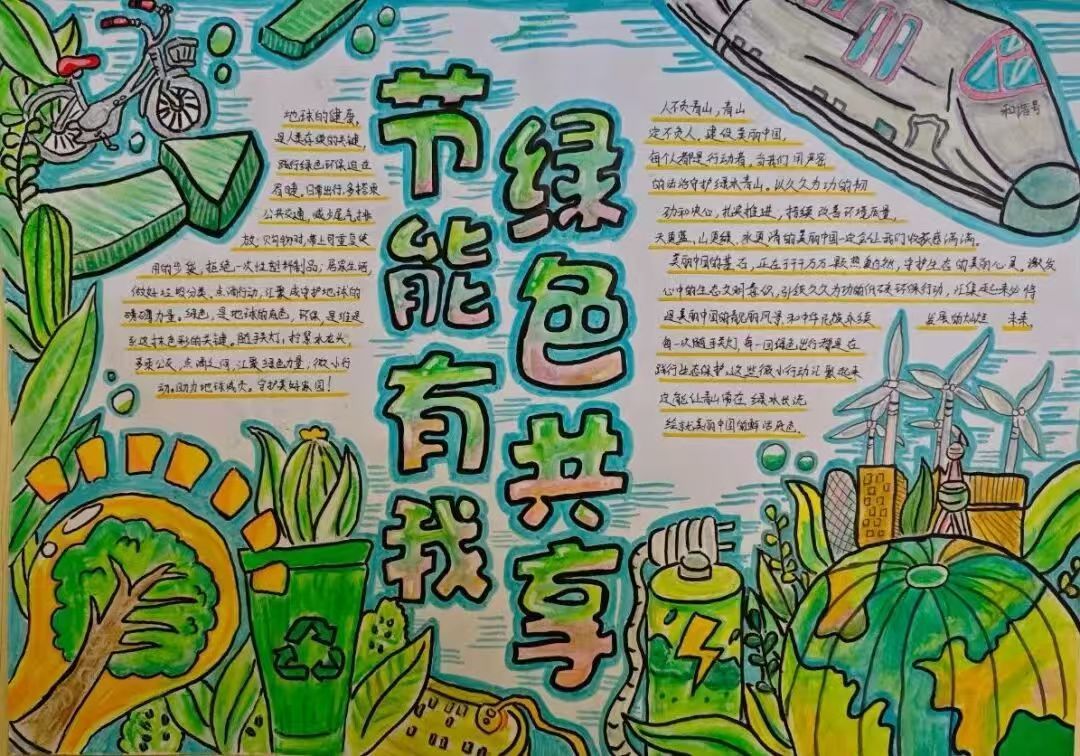 绿色共享
节能有我
地球的健康,
是人类存续的关键,
践行绿色环保迫在
眉睫。日常出行,多搭乘
公共交通,减少尾气排
放;购物时,带上可重复使
用的步袋,拒绝一次性塑料制品;居家生活,
做好垃圾分类。点滴行动,汇聚成守护地球的
磅礴力量。绿色,是地球的底色,环保,是维是
这抹色彩的关键。随手关灯,拧紧水龙头,
多乘公交,点滴之间,汇聚绿色力量,微小行
动,助力地球减负,守护美好家园!
人不负青山,青山
定不负人。建设美丽中国,
每个人都是行动者。当我们用严密
的法治守护绿水青山。以久久为功的韧
劲和决心,扎实推进,持续改善环境质量,
天更蓝、山更绿、水更清的美丽中国一定会让我们收获感满满。
美丽中国的基石,正在于千千万万颗热爱自然,守护生态的美丽心灵。激发
心中的生态文明意识,引领久久为功的低碳环保行动,汇集起来必将
是美丽中国的靓丽风景和中华民族永续 发展的 未来。
每一次随手关灯,每一回绿色出行都是在
践行生态保护。这些微小行动汇聚起来
定能让青山常在 绿水长流
绘就美丽中国的鲜活底色。
和谐号